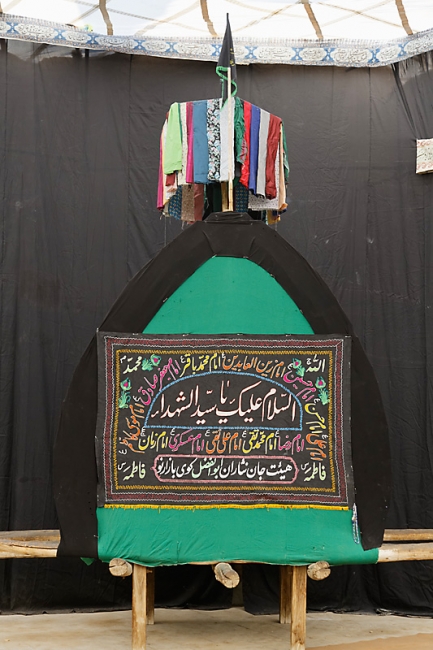 الله
محمد
امام حسن
امام حسین
امام زین العابدین
امام محمد باقر
امام جعفر صادق
امام موسی کاظم
السلام علیک یا سید الشهداء
امام رضا امام محمد تقی امام علی نقی امام عسکری امام زمان
فاطمه هیئت جان نثاران ابوالفضل کوی بازار نو فاطمه